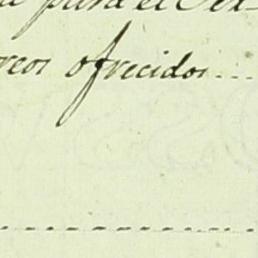 para el
reos ofrecidos....